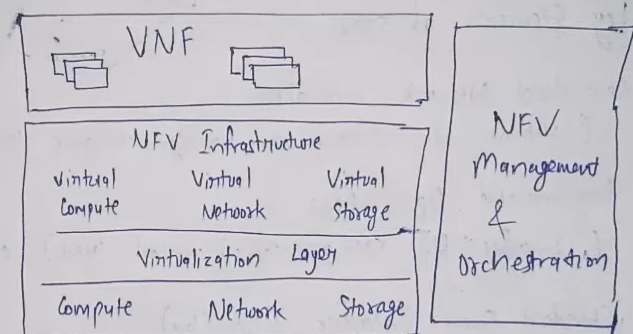 VNF
NFV Infrastructure
Virtual Virtual Virtual
Compute Network Storage
Virtualization Layer
Compute Network Storage
NFV
Management
&
Orchestration